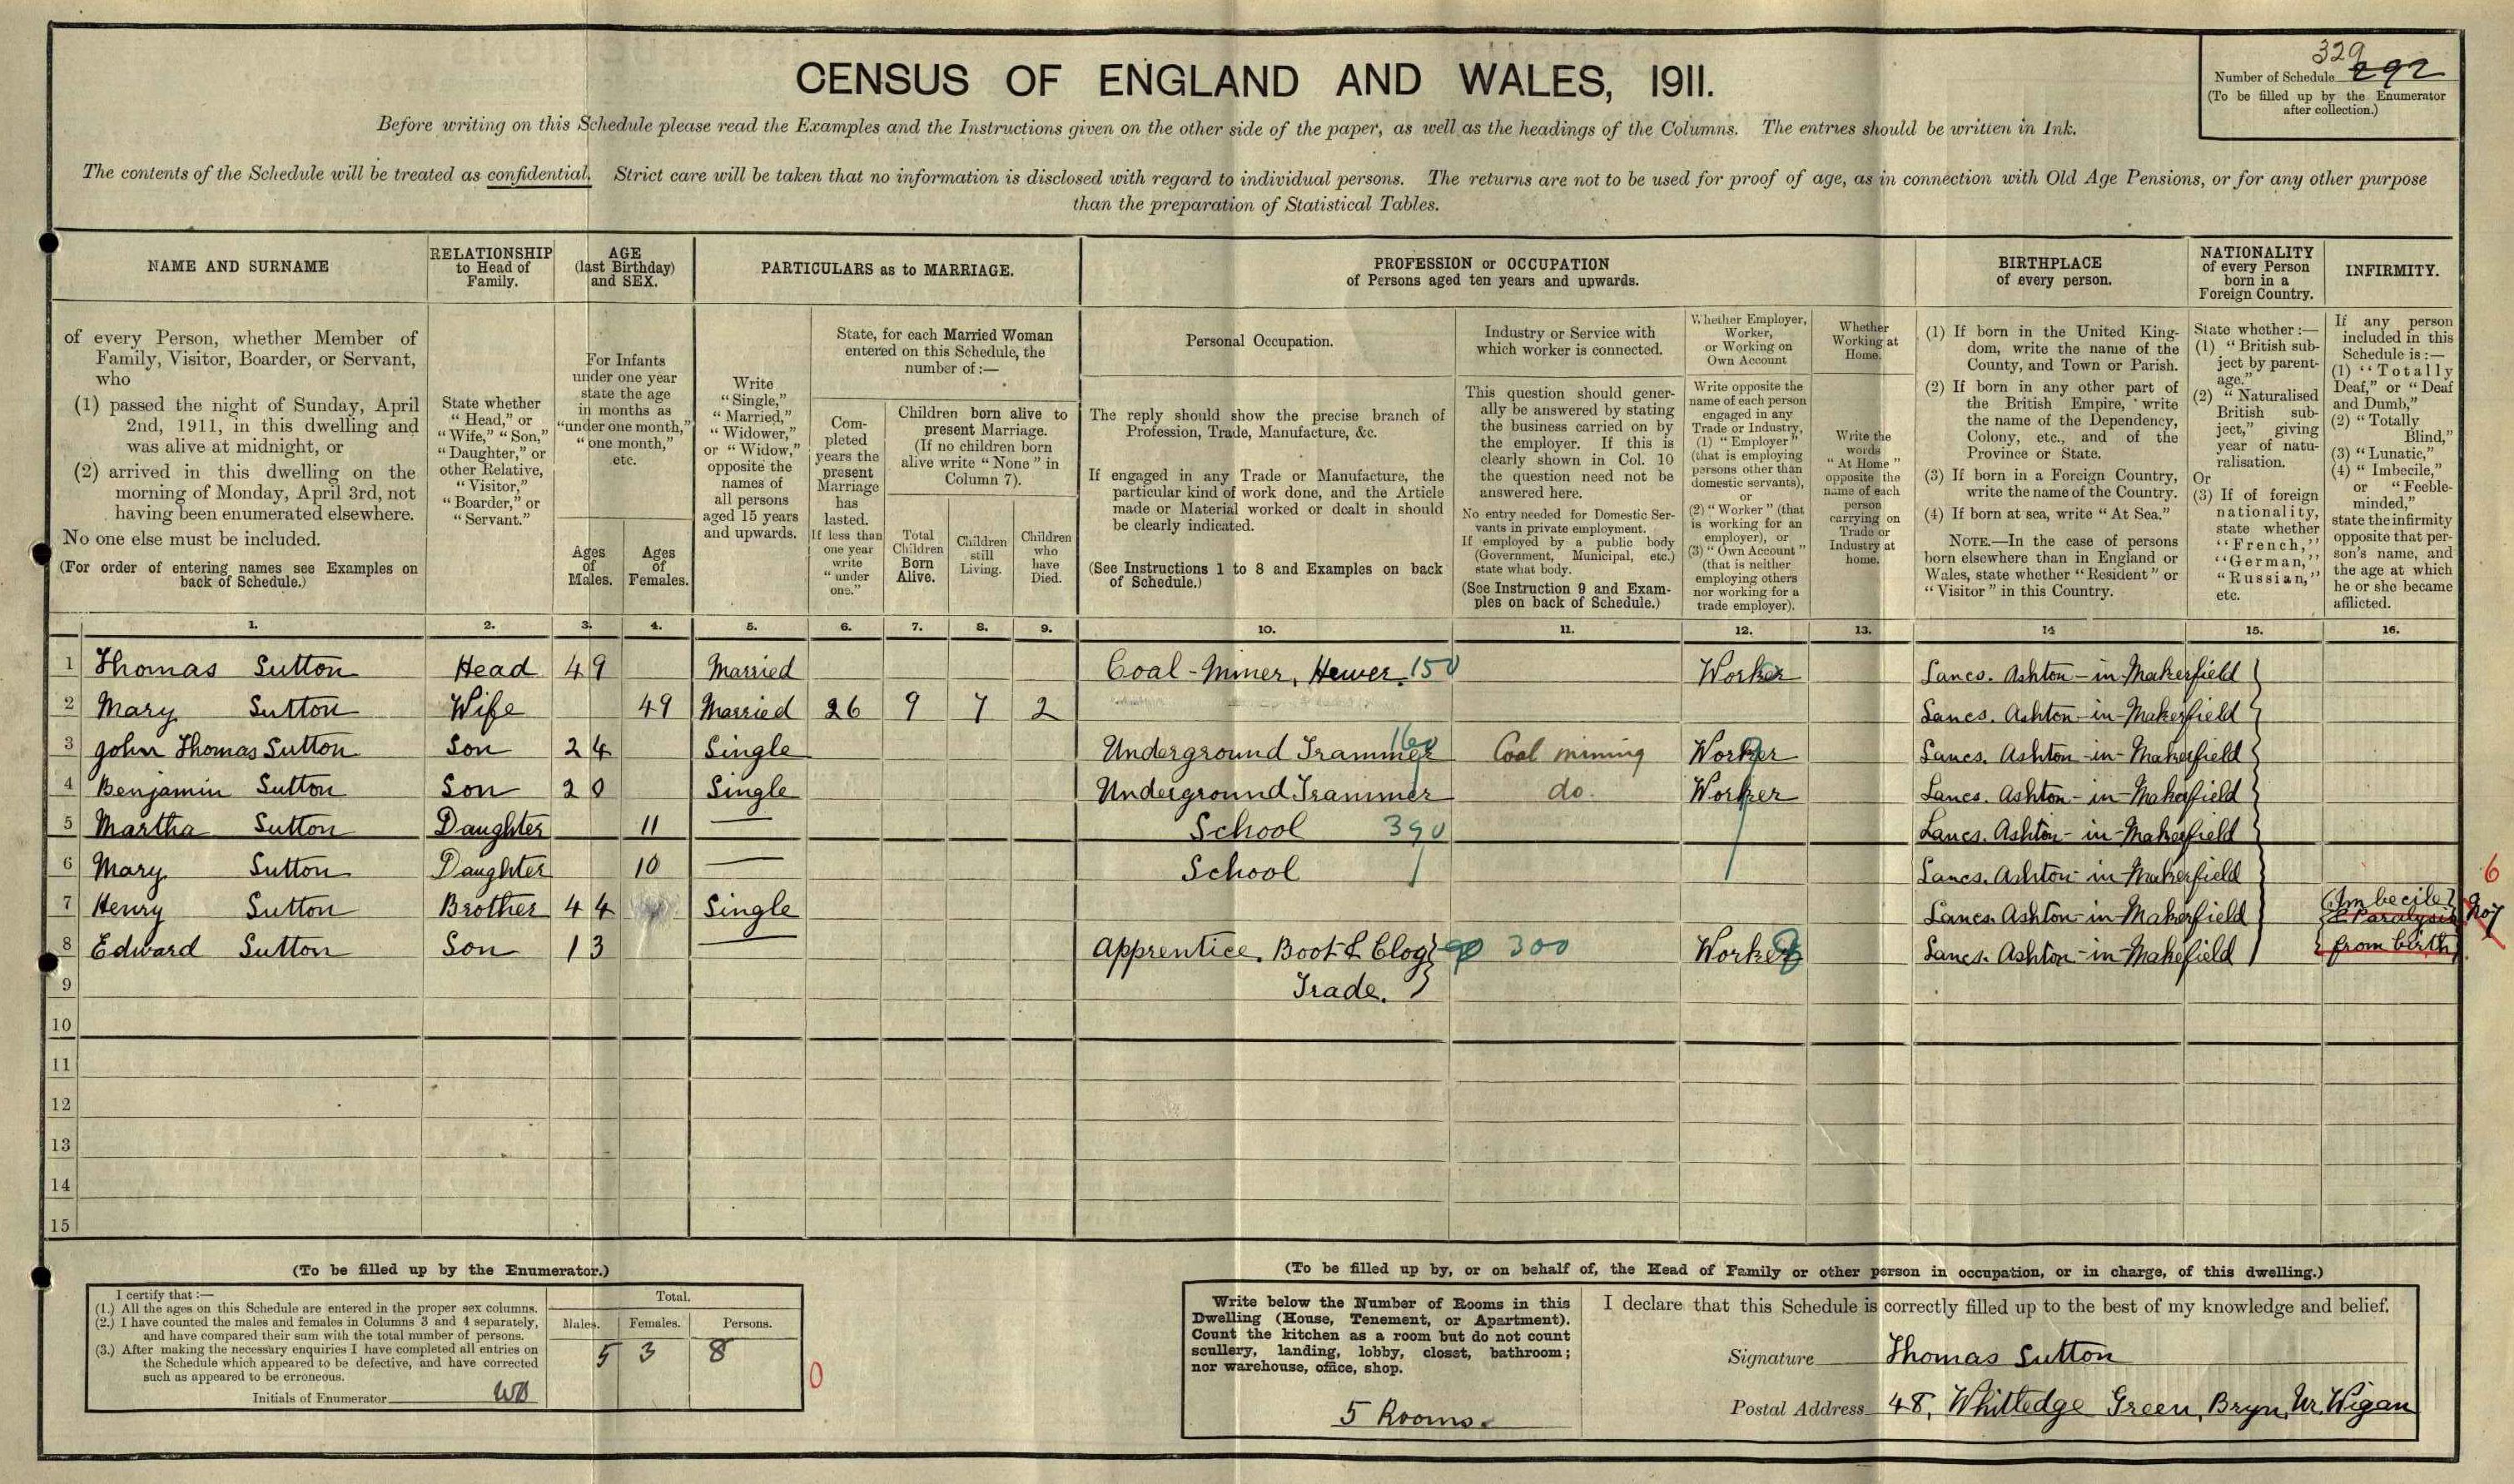 329
Number of Schedule 292
(To be filled up by the Enumerator
after collection.)
CENSUS OF ENGLAND AND WALES, 1911.
Before writing on this Schedule please read the Examples and the Instructions given on the other side of the paper, as well as the headings of the Columns. The entries should be written in Ink.
The contents of the Schedule will be treated as confidential. Strict care will be taken that no information is disclosed with regard to individual persons. The returns are not to be used for proof of age, as in connection with Old Age Pensions, or for any other purpose
than the preparation of Statistical Tables.
NAME AND SURNAME
of every Person, whether Member of
Family, Visitor, Boarder, or Servant,
who
(1) passed the night of Sunday, April
2nd, 1911, in this dwelling and
was alive at midnight, or
(2) arrived in this dwelling on the
morning of Monday, April 3rd, not
having been enumerated elsewhere.
No one else must be included.
(For order of entering names see Examples on
back of Schedule.)
RELATIONSHIP
to Head of
Family.
State whether
"Head," or
"Wife," "Son,"
"Daughter," or
other Relative,
"Visitor,"
"Boarder," or
"Servant."
AGE
(last Birthday)
and SEX.
For Infants
under one year
state the age
in months as
"under one month,"
"one month,"
etc.
Ages
of
Males.
Ages
of
Females.
PARTICULARS as to MARRIAGE.
Write
"Single,"
"Married,"
"Widower,"
or "Widow,"
opposite the
names of
all persons
aged 15 years
and upwards.
State, for each Married Woman
entered on this Schedule, the
number of :—
Com-
pleted
years the
present
Marriage
has
lasted.
If less than
one year
write
"under
one."
Children born alive to
present Marriage.
(If no children born
alive write "None" in
Column 7).
Total
Children
Born
Alive.
Children
still
Living.
Children
who
have
Died.
PROFESSION or OCCUPATION
of Persons aged ten years and upwards.
Personal Occupation.
The reply should show the precise branch of
Profession, Trade, Manufacture, &c.
If engaged in any Trade or Manufacture, the
particular kind of work done, and the Article
made or Material worked or dealt in should
be clearly indicated.
(See Instructions 1 to 8 and Examples on back
of Schedule.)
Industry or Service with
which worker is connected.
This question should gener-
ally be answered by stating
the business carried on by
the employer. If this is
clearly shown in Col. 10
the question need not be
answered here.
No entry needed for Domestic Ser-
vants in private employment.
If employed by a public body
(Government, Municipal, etc.)
state what body.
(See Instruction 9 and Exam-
ples on back of Schedule.)
Whether Employer,
Worker,
or Working on
Own Account
Write opposite the
name of each person
engaged in any
Trade or Industry,
(1) "Employer"
(that is employing
persons other than
domestic servants),
or
(2) "Worker" (that
is working for an
employer), or
(3) "Own Account"
(that is neither
employing others
nor working for a
trade employer).
Whether
Working at
Home.
Write the
words
"At Home"
opposite the
name of each
person
carrying on
Trade or
Industry at
home.
BIRTHPLACE
of every person.
(1) If born in the United King-
dom, write the name of the
County, and Town or Parish.
(2) If born in any other part of
the British Empire, write
the name of the Dependency,
Colony, etc., and of the
Province or State.
(3) If born in a Foreign Country,
write the name of the Country.
(4) If born at sea, write "At Sea."
NOTE.—In the case of persons
born elsewhere than in England or
Wales, state whether "Resident" or
"Visitor" in this Country.
NATIONALITY
of every Person
born in a
Foreign Country.
State whether :—
(1) "British sub-
ject by parent-
age."
(2) "Naturalised
British sub-
ject," giving
year of natu-
ralisation.
Or
(3) If of foreign
nationality,
state whether
"French,"
"German,"
"Russian,"
etc.
INFIRMITY.
If any person
included in this
Schedule is :—
(1) "Totally
Deaf," or "Deaf
and Dumb,"
(2) "Totally
Blind,"
(3) "Lunatic,"
(4) "Imbecile,"
or "Feeble-
minded,"
state the infirmity
opposite that per-
son's name, and
the age at which
he or she became
afflicted.
1. 2. 3. 4. 5. 6. 7. 8. 9. 10. 11. 12. 13. 14 15. 16.
1 Thomas Sutton Head 49 Married Coal-Miner, Hewer. 150 Worker Lancs. Ashton-in-Makerfield
2 Mary Sutton Wife 49 Married 26 9 7 2 Lancs. Ashton-in-Makerfield
3 John Thomas Sutton Son 24 Single Underground Trammer 160 Coal mining Worker Lancs. Ashton-in-Makerfield
4 Benjamin Sutton Son 20 Single Underground Trammer do. Worker Lancs. Ashton-in-Makerfield
5 Martha Sutton Daughter 11 — School 390 Lancs. Ashton-in-Makerfield
6 Mary Sutton Daughter 10 — School Lancs. Ashton-in-Makerfield 6
7 Henry Sutton Brother 44 Single Lancs. Ashton-in-Makerfield (Imbecile)
& Paralysis
8 Edward Sutton Son 13 — Apprentice. Boot & Clog 300 Worker Lancs. Ashton-in-Makefield from birth
9 Trade.
10
11
12
13
14
15
(To be filled up by the Enumerator.)
I certify that :—
(1.) All the ages on this Schedule are entered in the proper sex columns.
(2.) I have counted the males and females in Columns 3 and 4 separately,
and have compared their sum with the total number of persons.
(3.) After making the necessary enquiries I have completed all entries on
the Schedule which appeared to be defective, and have corrected
such as appeared to be erroneous.
Initials of Enumerator
Total.
Males. Females. Persons.
5 3 8
0
(To be filled up by, or on behalf of, the Head of Family or other person in occupation, or in charge, of this dwelling.)
Write below the Number of Rooms in this
Dwelling (House, Tenement, or Apartment).
Count the kitchen as a room but do not count
scullery, landing, lobby, closet, bathroom;
nor warehouse, office, shop.
5 Rooms.
I declare that this Schedule is correctly filled up to the best of my knowledge and belief.
Signature Thomas Sutton
Postal Address 48, Whitledge Green, Bryn, Nr. Wigan